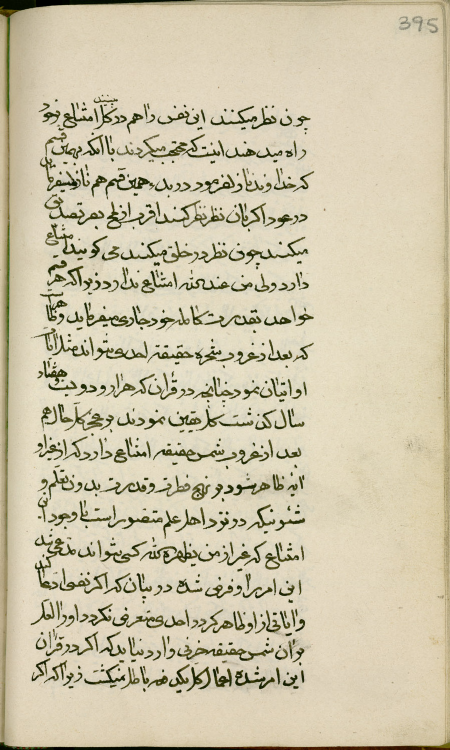 395
چون نظر میکنند این نفس را هم در کل امتناع خود
راه میدهند اینست که محتجب میگردند با آنکه بهمین قسم
که خداوند نازل فرموده در بدء همین قسم هم نازل میفرماید
در عود اگر بآن نظر نظر کنند اقرب از لمح بصر تصدیق
میکنند چون نظر در خلق میکنند می گویند امتناع
دارد ولی من عند الله امتناع ندارد زیرا که هر قسم
خواهد بقدرت کامله خود جاری میفرماید و ظاهر است
که بعد از غروب شجره حقیقت احدی نتواند مثل آیات
او اتیان نمود چنانچه در قرآن که هزار و دویست و هفتاد
سال گذشت کل یقین نمودند بر عجز کل حال هم
بعد از غروب شمس حقیقت امتناع دارد که از غیر او
آیه ظاهر شود بر نهج فطرت و قدرت بدون تعلم و
شئونیکه در نزد اهل علم متصور است با وجود این
امتناع که غیر از من یظهره الله کسی نتواند مدعی شد
این امر را فرض شده در بیان که اگر نفسی ادعا کند
و آیاتی از او ظاهر گردد احدی متعرض نگردد او را لعل
بر آن شمس حقیقت حزنی وارد نیاید که اگر در قرآن
این امر شده اعمال کل یک همه باطل نمیگشت زیرا که اگر